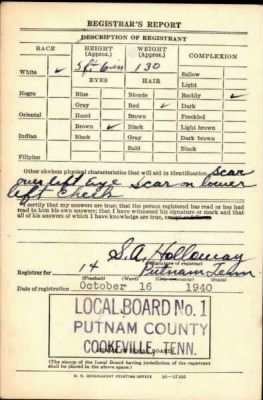 REGISTRAR'S REPORT
DESCRIPTION OF REGISTRANT
RACE HEIGHT (Approx.) WEIGHT (Approx.) COMPLEXION
White ✓ 5 ft 6 in 130 Sallow
EYES HAIR Light
Negro Blue Blonde Ruddy ✓
Gray Red ✓ Dark
Oriental Hazel Brown Freckled
Brown ✓ Black Light brown
Indian Black Gray Dark brown
Bald Black
Filipino
Other obvious physical characteristics that will aid in identification Scar
over left eye Scar on lower
left Cheek
I certify that my answers are true; that the person registered has read or has had
read to him his own answers; that I have witnessed his signature or mark and that
all of his answers of which I have knowledge are true, except as follows:
S. A. Holloway
(Signature of registrar)
Registrar for 14 Putnam Tenn
(Precinct) (Ward) (State)
Date of registration October 16 1940
LOCAL BOARD No. 1
PUTNAM COUNTY
COOKEVILLE, TENN.
(The stamp of the Local Board having jurisdiction of the registrant
shall be placed in the above space.)
U. S. GOVERNMENT PRINTING OFFICE